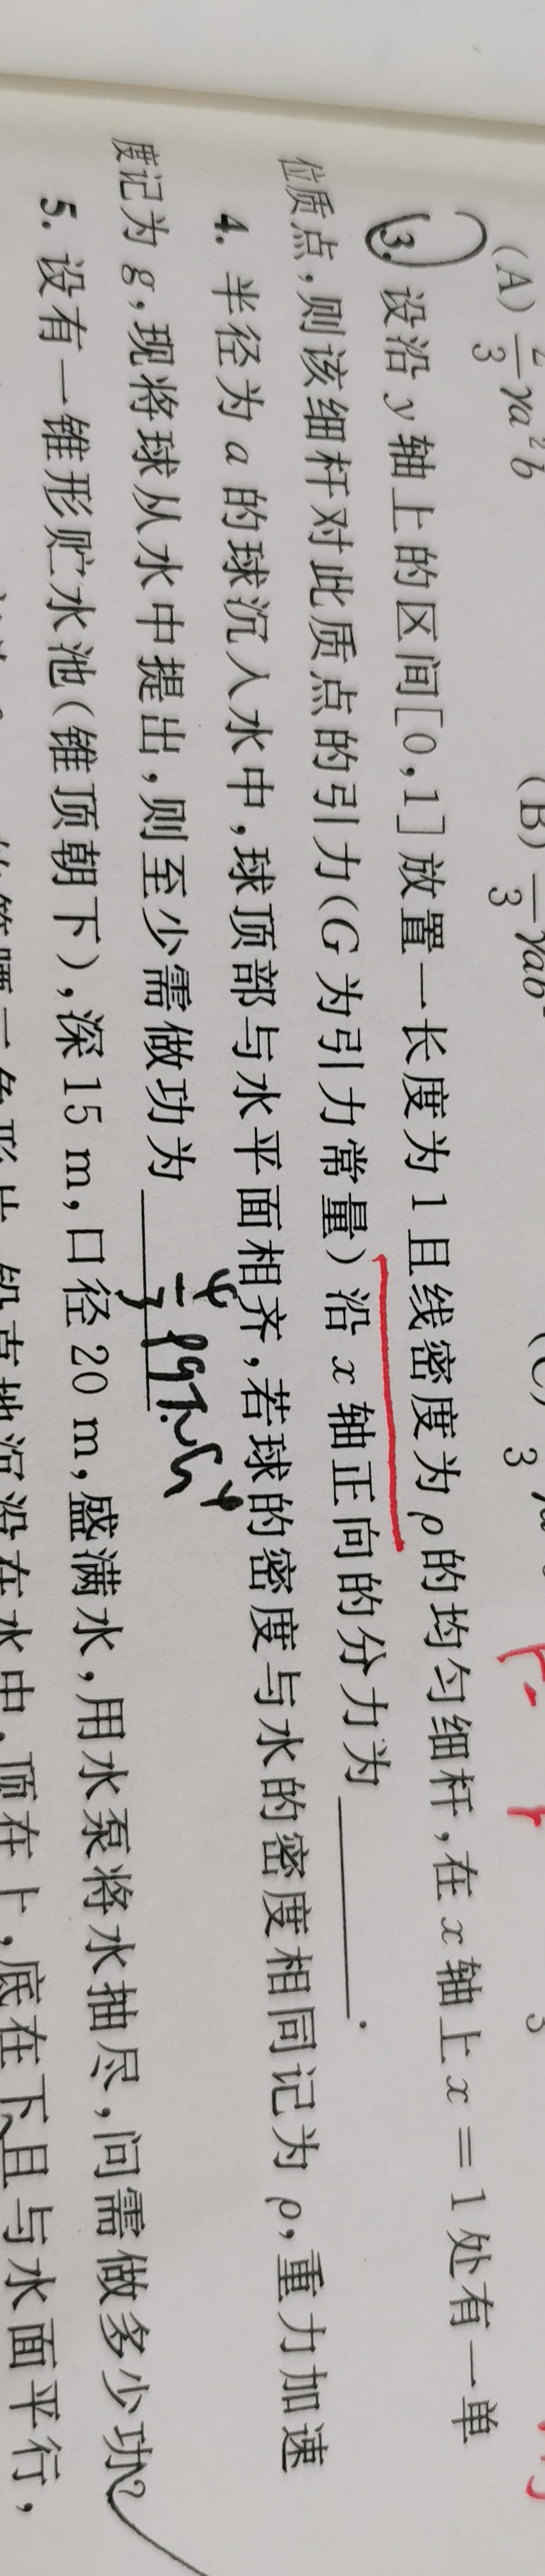 (A) \frac{2}{3}γa²b (B) \frac{}{3}γab² (C) \frac{}{3}γa
3. 设沿 y 轴上的区间[0,1]放置一长度为 1 且线密度为 ρ 的均匀细杆,在 x 轴上 x = 1 处有一单
位质点,则该细杆对此质点的引力(G 为引力常量)沿 x 轴正向的分力为________.
4. 半径为 a 的球沉入水中,球顶部与水平面相齐,若球的密度与水的密度相同记为 ρ,重力加速
度记为 g,现将球从水中提出,则至少需做功为 \frac{4}{3}ρgπa⁴
5. 设有一锥形贮水池(锥顶朝下),深 15 m,口径 20 m,盛满水,用水泵将水抽尽,问需做多少功?
的等腰三角形片,铅直地沉没在水中,顶在上,底在下且与水面平行,